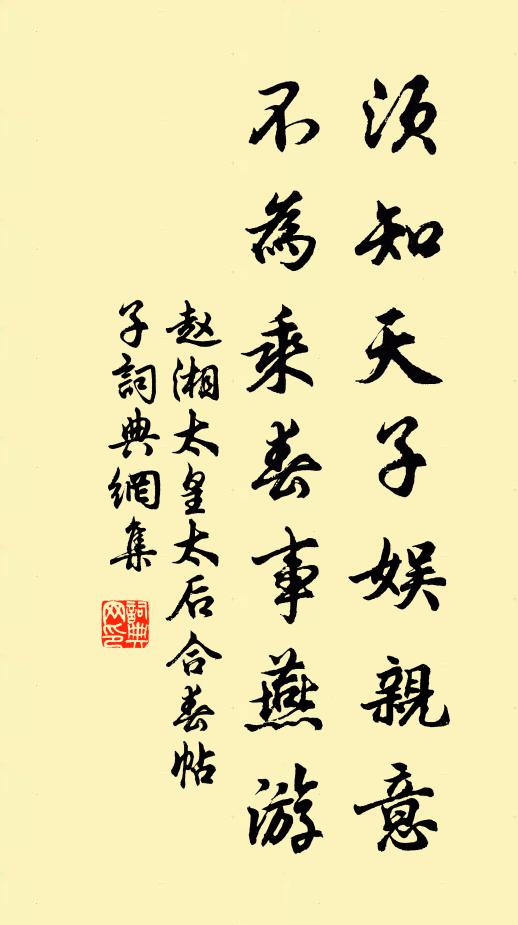 須知天子娛親意
不為乘春事燕游
赵湘太皇太后合春帖
子詞典網集
詞典
网印